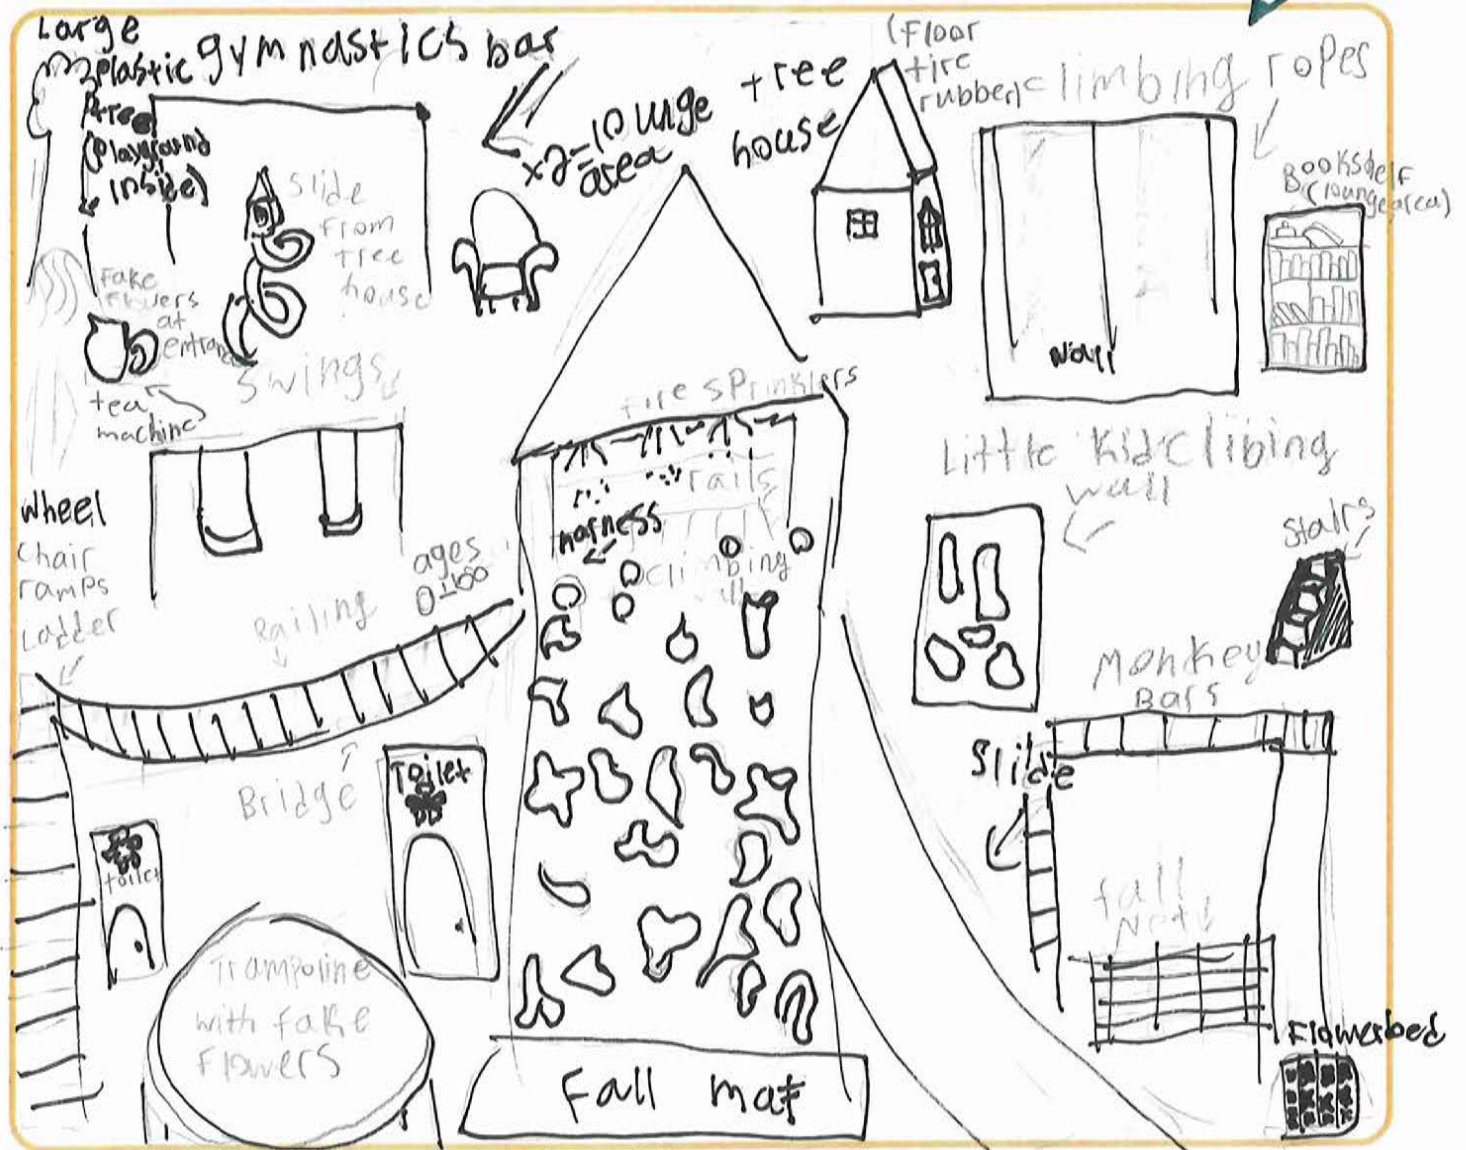 Large
Plastic
tree
(Playground
inside)
gymnastics bar
x2-lounge
area
tree
house
(floor
tire
rubber)
climbing ropes
Bookshelf
(lounge area)
Slide
from
tree
house
Fake
flowers
at
entrance
tea
machine
Swings
fire sprinklers
rails
harness
climbing
wall
Little Kid Clibing
wall
Stairs
Wheel
Chair
ramps
Ladder
Railing
ages
0-100
Monkey
Bars
Bridge
Toilet
toilet
Slide
fall
Net
Trampoline
with fake
Flowers
Fall mat
Flowerbed